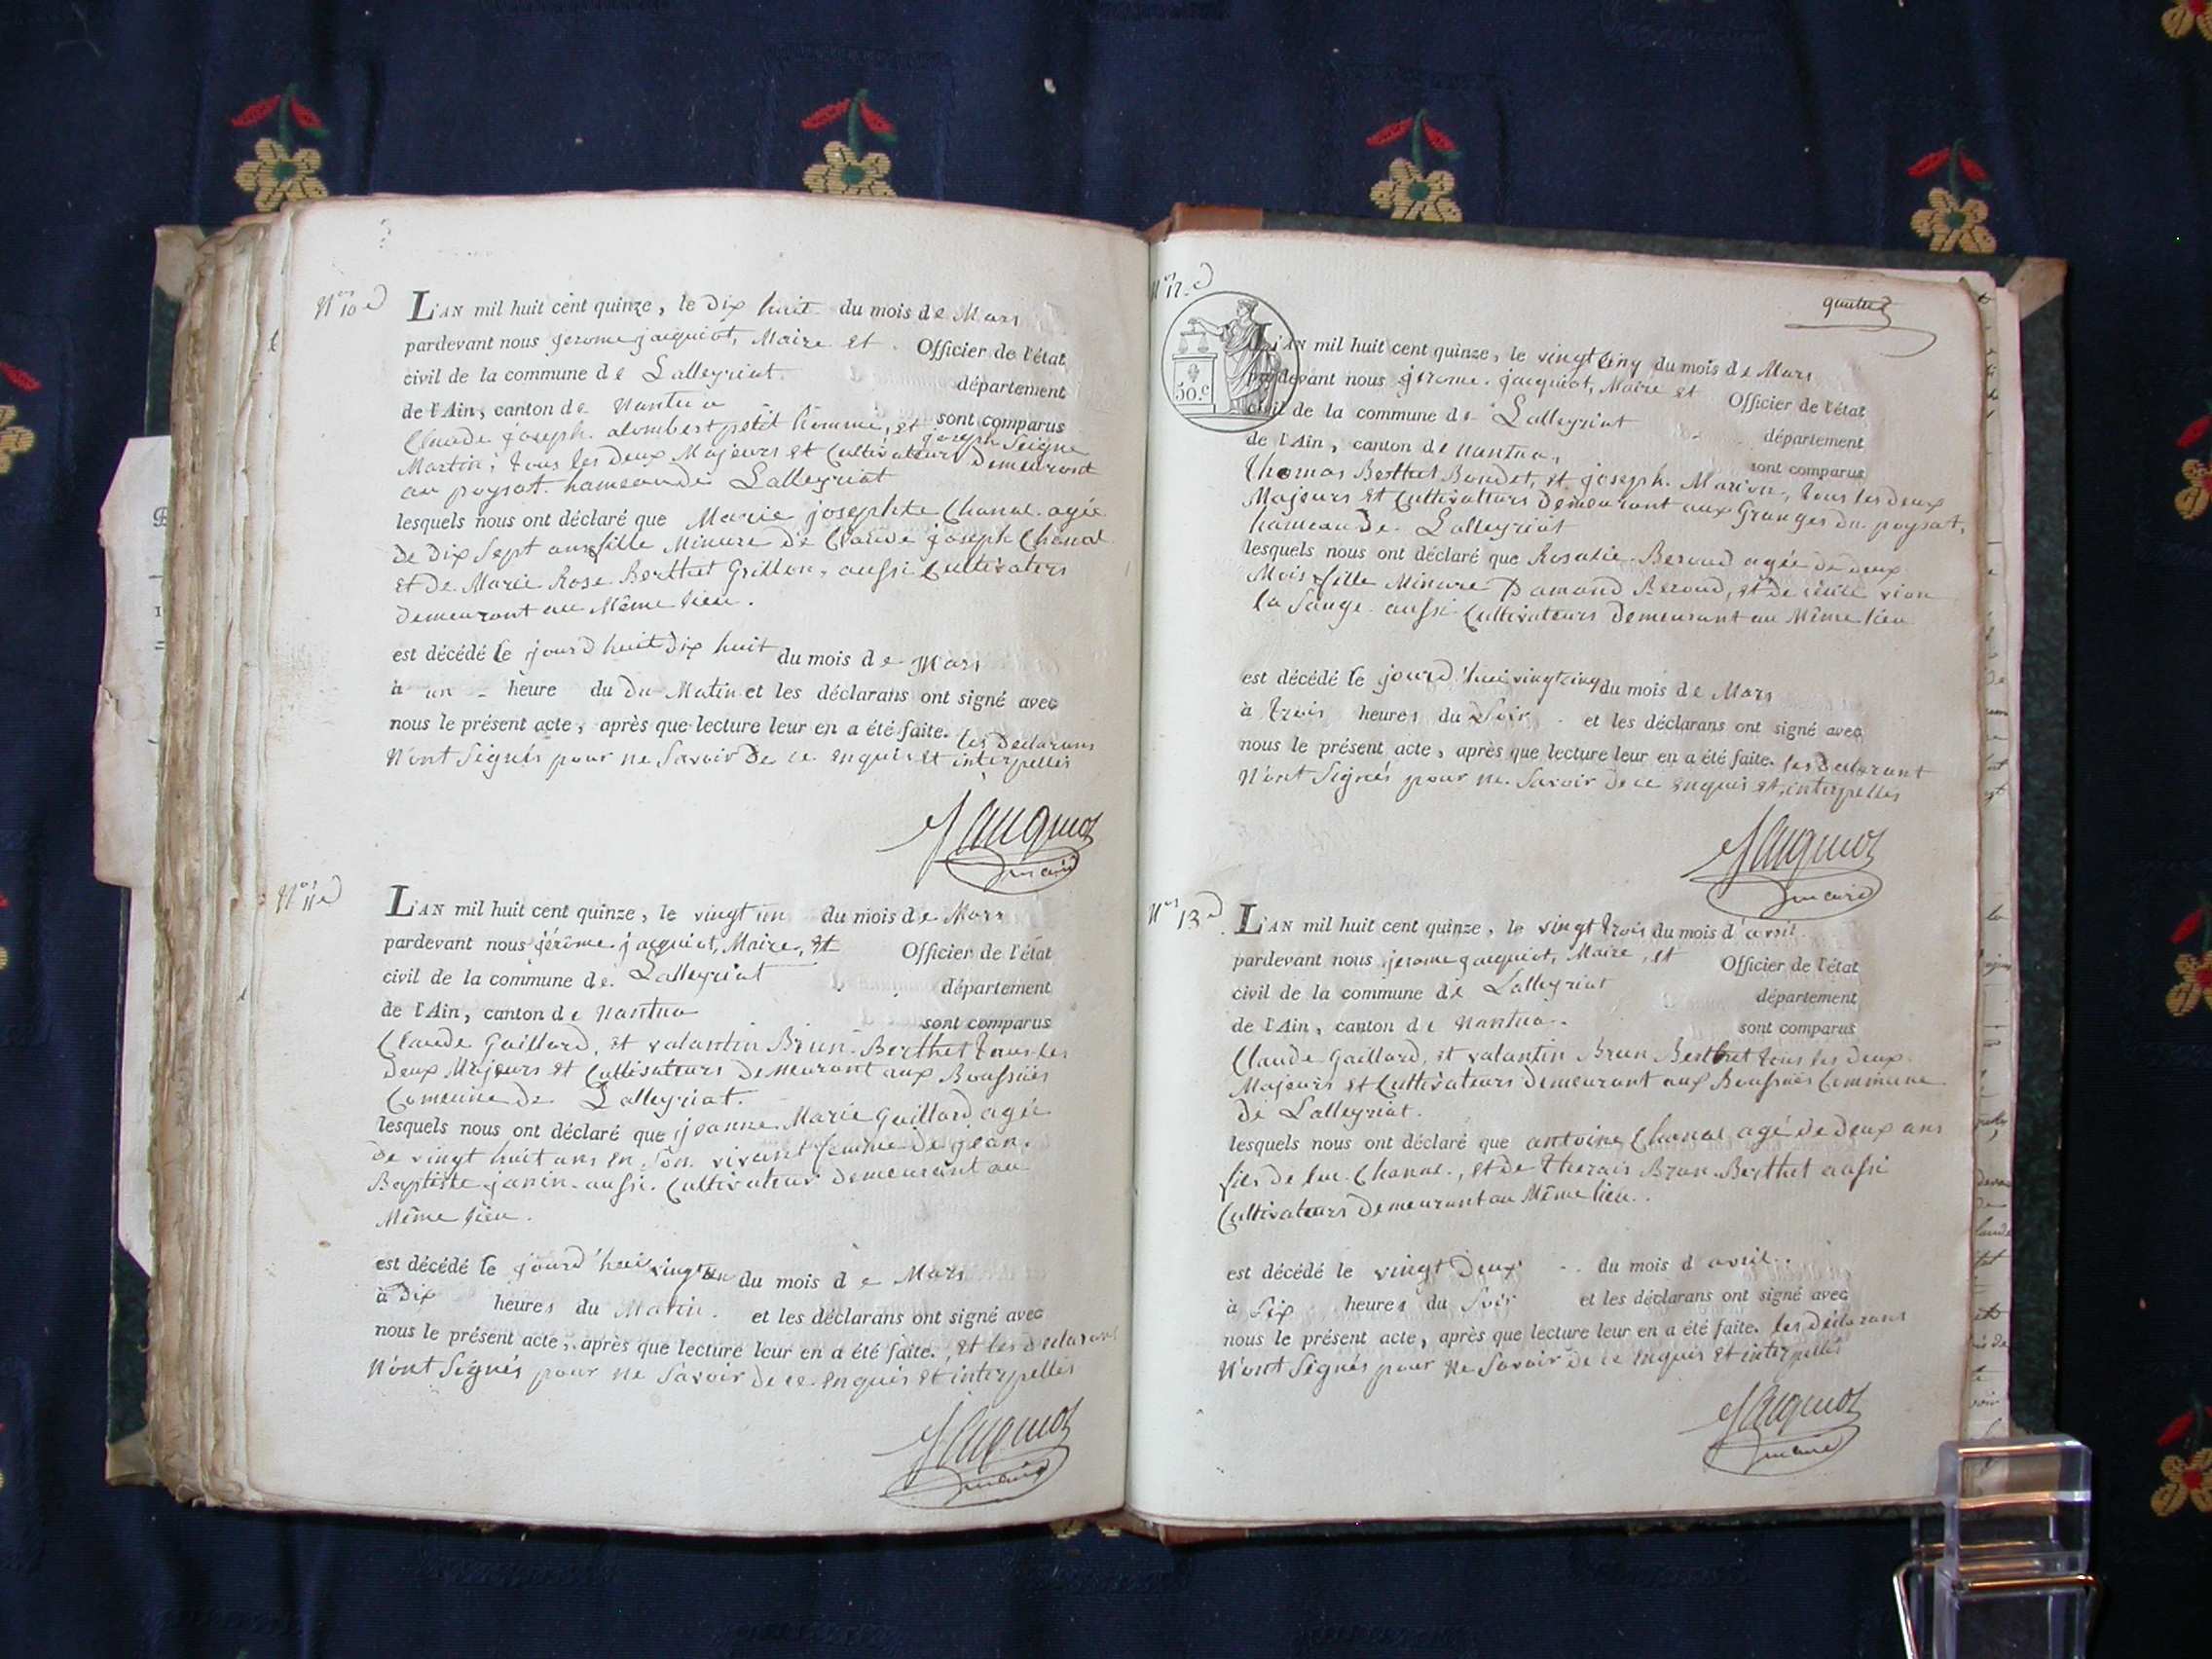 Nos 10e
L'AN mil huit cent quinze, le dix huit du mois de Mars
pardevant nous jerome jacquiot, Maire et Officier de l'état
civil de la commune de Lalleyriat département
de l'Ain, canton de Nantua sont comparus
Claude joseph alombert petit homme, et joseph Seigne
Martin, tous les deux Majeurs et Cultivateurs demeurant
au poysat hameau de Lalleyriat
lesquels nous ont déclaré que Marie josephte Chanal agée
de dix Sept ans fille Mineure de Claude joseph Chanal
et de Marie Rose Berthet Grillon, aussi Cultivaters
demeurant au Même lieu.
est décédé le jourd huit dix huit du mois de Mars
à un heure du du Matin et les déclarans ont signé avec
nous le présent acte, après que lecture leur en a été faite. les declarans
N'ont Signés pour ne Savoir de ce enquis et interpellés
Jacquiot
maire
Nos 11e
L'AN mil huit cent quinze, le vingt un du mois de Mars
pardevant nous jérôme jacquiot, Maire, et Officier de l'état
civil de la commune de Lalleyriat département
de l'Ain, canton de Nantua sont comparus
Claude Gaillard, et valantin Brun Berthet tous les
deux Majeurs et Cultivateurs demeurant aux
Comune de Lalleyriat.
lesquels nous ont déclaré que jeanne Marie Gaillard agée
de vingt huit ans en Son vivant femme de jean
Baptiste janin aussi Cultivateur demeurant au
Même lieu.
est décédé le jourd'hui vingt un du mois de Mars
à dix heures du Matin. et les déclarans ont signé avec
nous le présent acte, après que lecture leur en a été faite., et les declarans
N'ont Signés pour ne Savoir de ce enquis et interpellés
Jacquiot
maire
Nos 12e
50.c
L'AN mil huit cent quinze, le vingt cinq du mois de Mars
pardevant nous jerome jacquiot, Maire et Officier de l'état
civil de la commune de Lalleyriat département
de l'Ain, canton de Nantua, sont comparus
Thomas Berthet Bondet, et joseph Marion, tous les deux
Majeurs et Cultivateurs demeurant aux Granges du poysat,
hameau de Lalleyriat
lesquels nous ont déclaré que Rosalie Beroud agée de deux
Mois fille Mineure Damand Beroud, et de
aussi Cultivateurs demeurant au Même lieu
est décédé le jourd'hui vingt cinq du mois de Mars
à trois heures du Soir et les déclarans ont signé avec
nous le présent acte, après que lecture leur en a été faite. les declarant
N'ont Signés pour ne Savoir de ce enquis et interpellés
Jacquiot
maire
Nos 13e
L'AN mil huit cent quinze, le vingt trois du mois d'avril
pardevant nous jerome jacquiot, Maire, et Officier de l'état
civil de la commune de Lalleyriat département
de l'Ain, canton de Nantua. sont comparus
Claude Gaillard, et valantin Brun Berthet tous les deux
Majeurs et Cultivateurs demeurant aux Commune
de Lalleyriat.
lesquels nous ont déclaré que antoine Chanal agé de deux ans
fils de luc Chanal, et de Brun Berthet aussi
Cultivateurs demeurant au Même lieu.
est décédé le vingt deux du mois d avril
à Six heures du Soir et les déclarans ont signé avec
nous le présent acte, après que lecture leur en a été faite. les declarans
N'ont Signés pour ne Savoir de ce enquis et interpellés
Jacquiot
maire